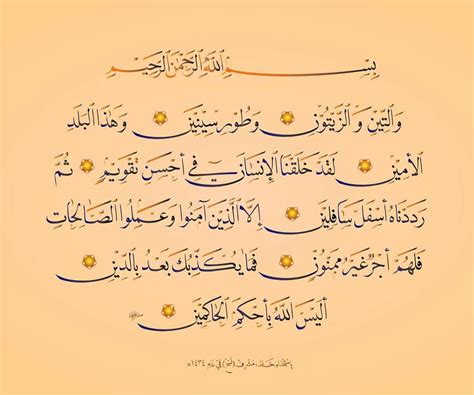 بِسْمِ اللَّهِ الرَّحْمَنِ الرَّحِيمِ
وَالتِّينِ وَالزَّيْتُونِ وَطُورِ سِينِينَ وَهَذَا الْبَلَدِ
الْأَمِينِ لَقَدْ خَلَقْنَا الْإِنسَانَ فِي أَحْسَنِ تَقْوِيمٍ ثُمَّ
رَدَدْنَاهُ أَسْفَلَ سَافِلِينَ إِلَّا الَّذِينَ آمَنُوا وَعَمِلُوا الصَّالِحَاتِ
فَلَهُمْ أَجْرٌ غَيْرُ مَمْنُونٍ فَمَا يُكَذِّبُكَ بَعْدُ بِالدِّينِ
أَلَيْسَ اللَّهُ بِأَحْكَمِ الْحَاكِمِينَ
في عام ١٤٣٤هـ